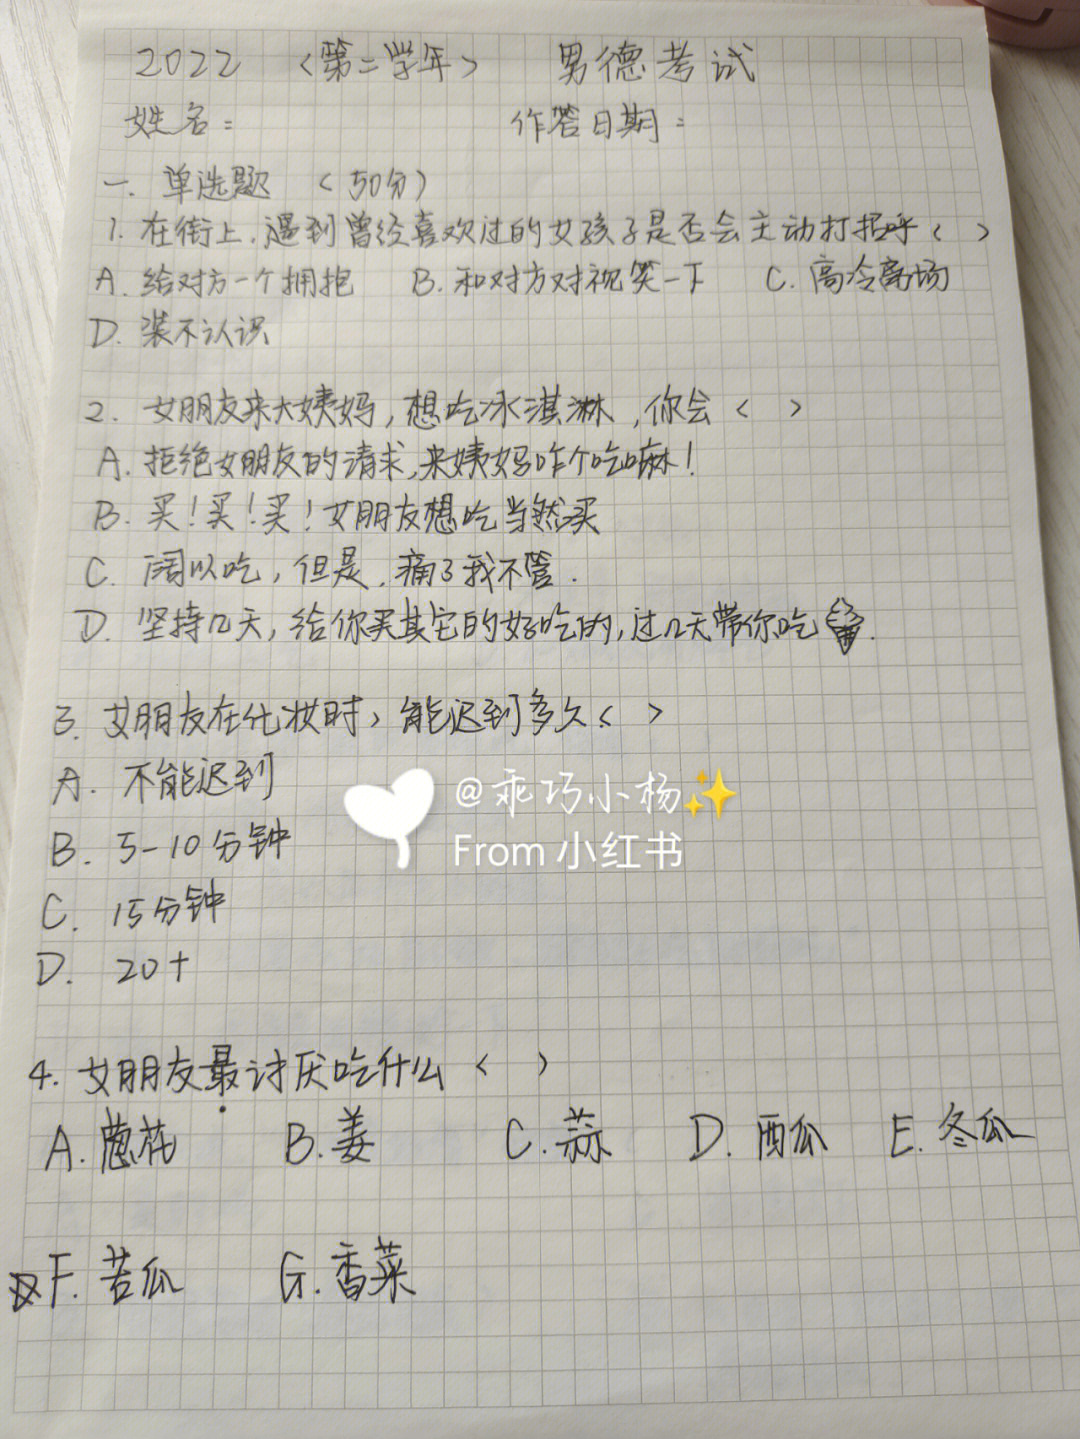 2022 <第二学年> 男德考试
姓名: 作答日期:
一. 单选题 (50分)
1. 在街上,遇到曾经喜欢过的女孩子是否会主动打招呼< >
A. 给对方一个拥抱 B. 和对方对视笑一下 C. 高冷离场
D. 装不认识
2. 女朋友来大姨妈,想吃冰淇淋,你会< >
A. 拒绝女朋友的请求,来姨妈咋个吃嘛!
B. 买!买!买!女朋友想吃当然买
C. 阔以吃,但是,痛了我不管.
D. 坚持几天,给你买其它的好吃的,过几天带你吃.
3. 女朋友在化妆时,能迟到多久< >
A. 不能迟到
@乖巧小杨✨
B. 5-10分钟
From 小红书
C. 15分钟
D. 20+
4. 女朋友最讨厌吃什么< >
A. 葱花 B. 姜 C. 蒜 D. 西瓜 E. 冬瓜
F. 苦瓜 G. 香菜